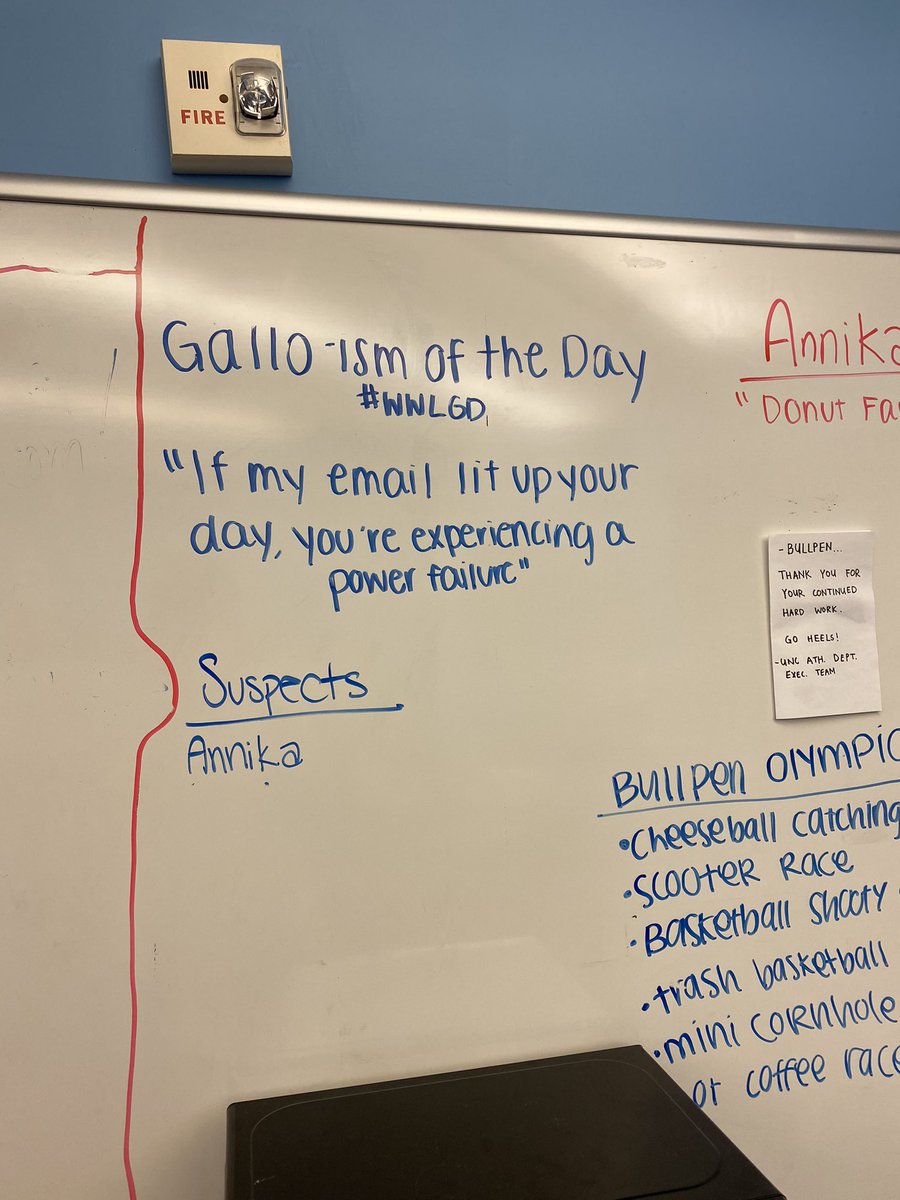 FIRE
Gallo-ism of the Day
#WWLGD
"If my email lit up your
day, you're experiencing a
power failure"
Suspects
Annika
Annika
"Donut Fa
- BULLPEN...
THANK YOU FOR
YOUR CONTINUED
HARD WORK.
GO HEELS!
-UNC ATH. DEPT.
EXEC. TEAM
Bullpen Olympic
•Cheeseball catching
•SCOOTER RACE
•Basketball shooty
•trash basketball
•mini cornhole
ot coffee race